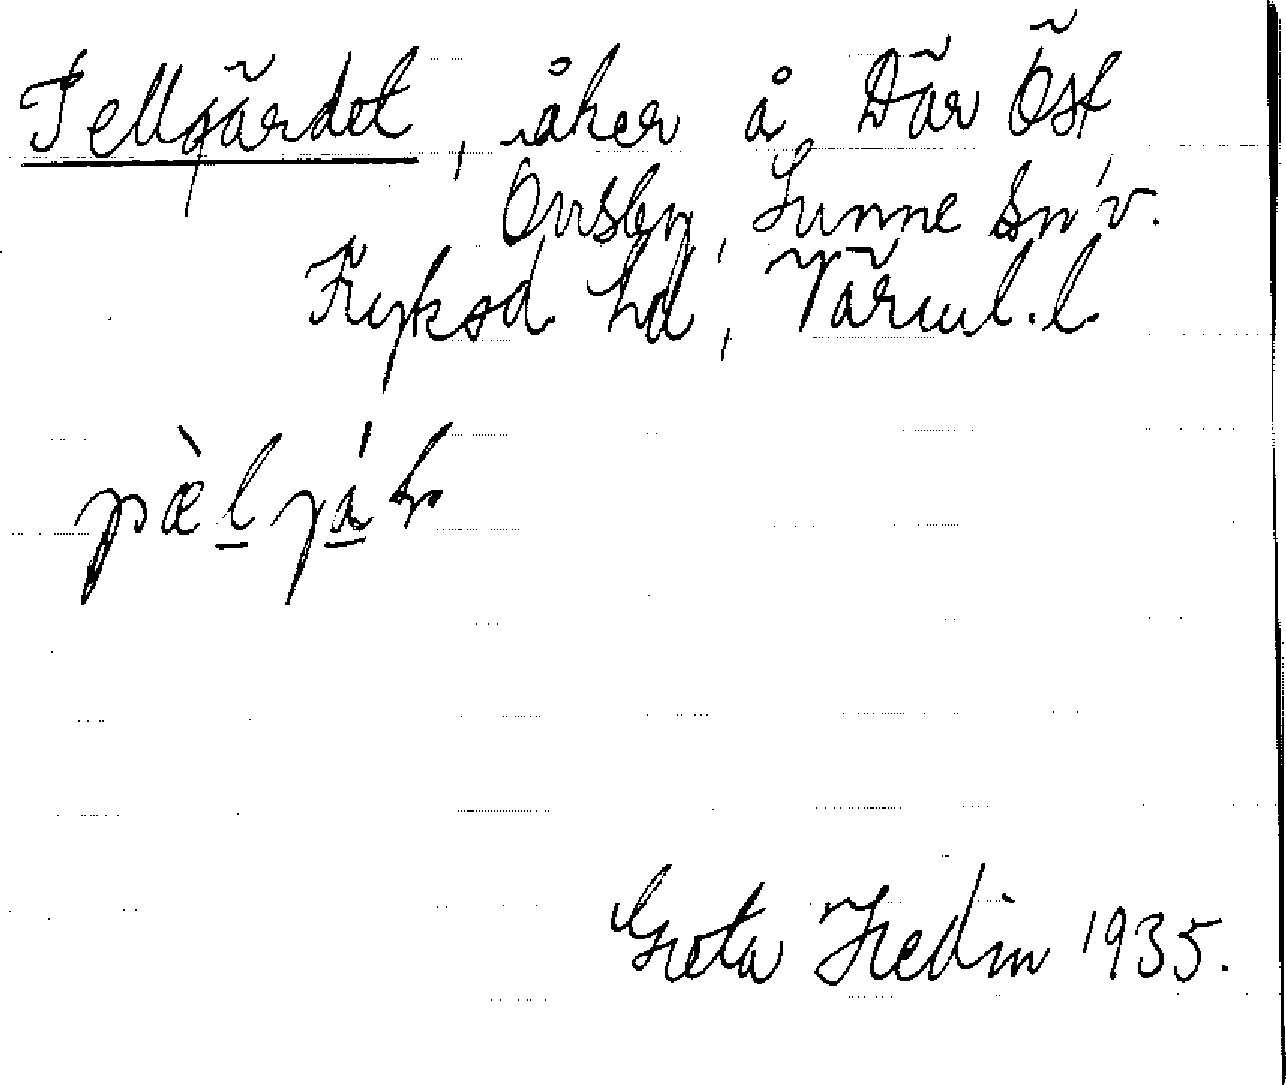 Pellgärdet, åker å Där Öst
Önsby, Sunne sn, v.
Fryksd. hd, Värml. l.
pæ̀lyá
Greta Hedin 1935.